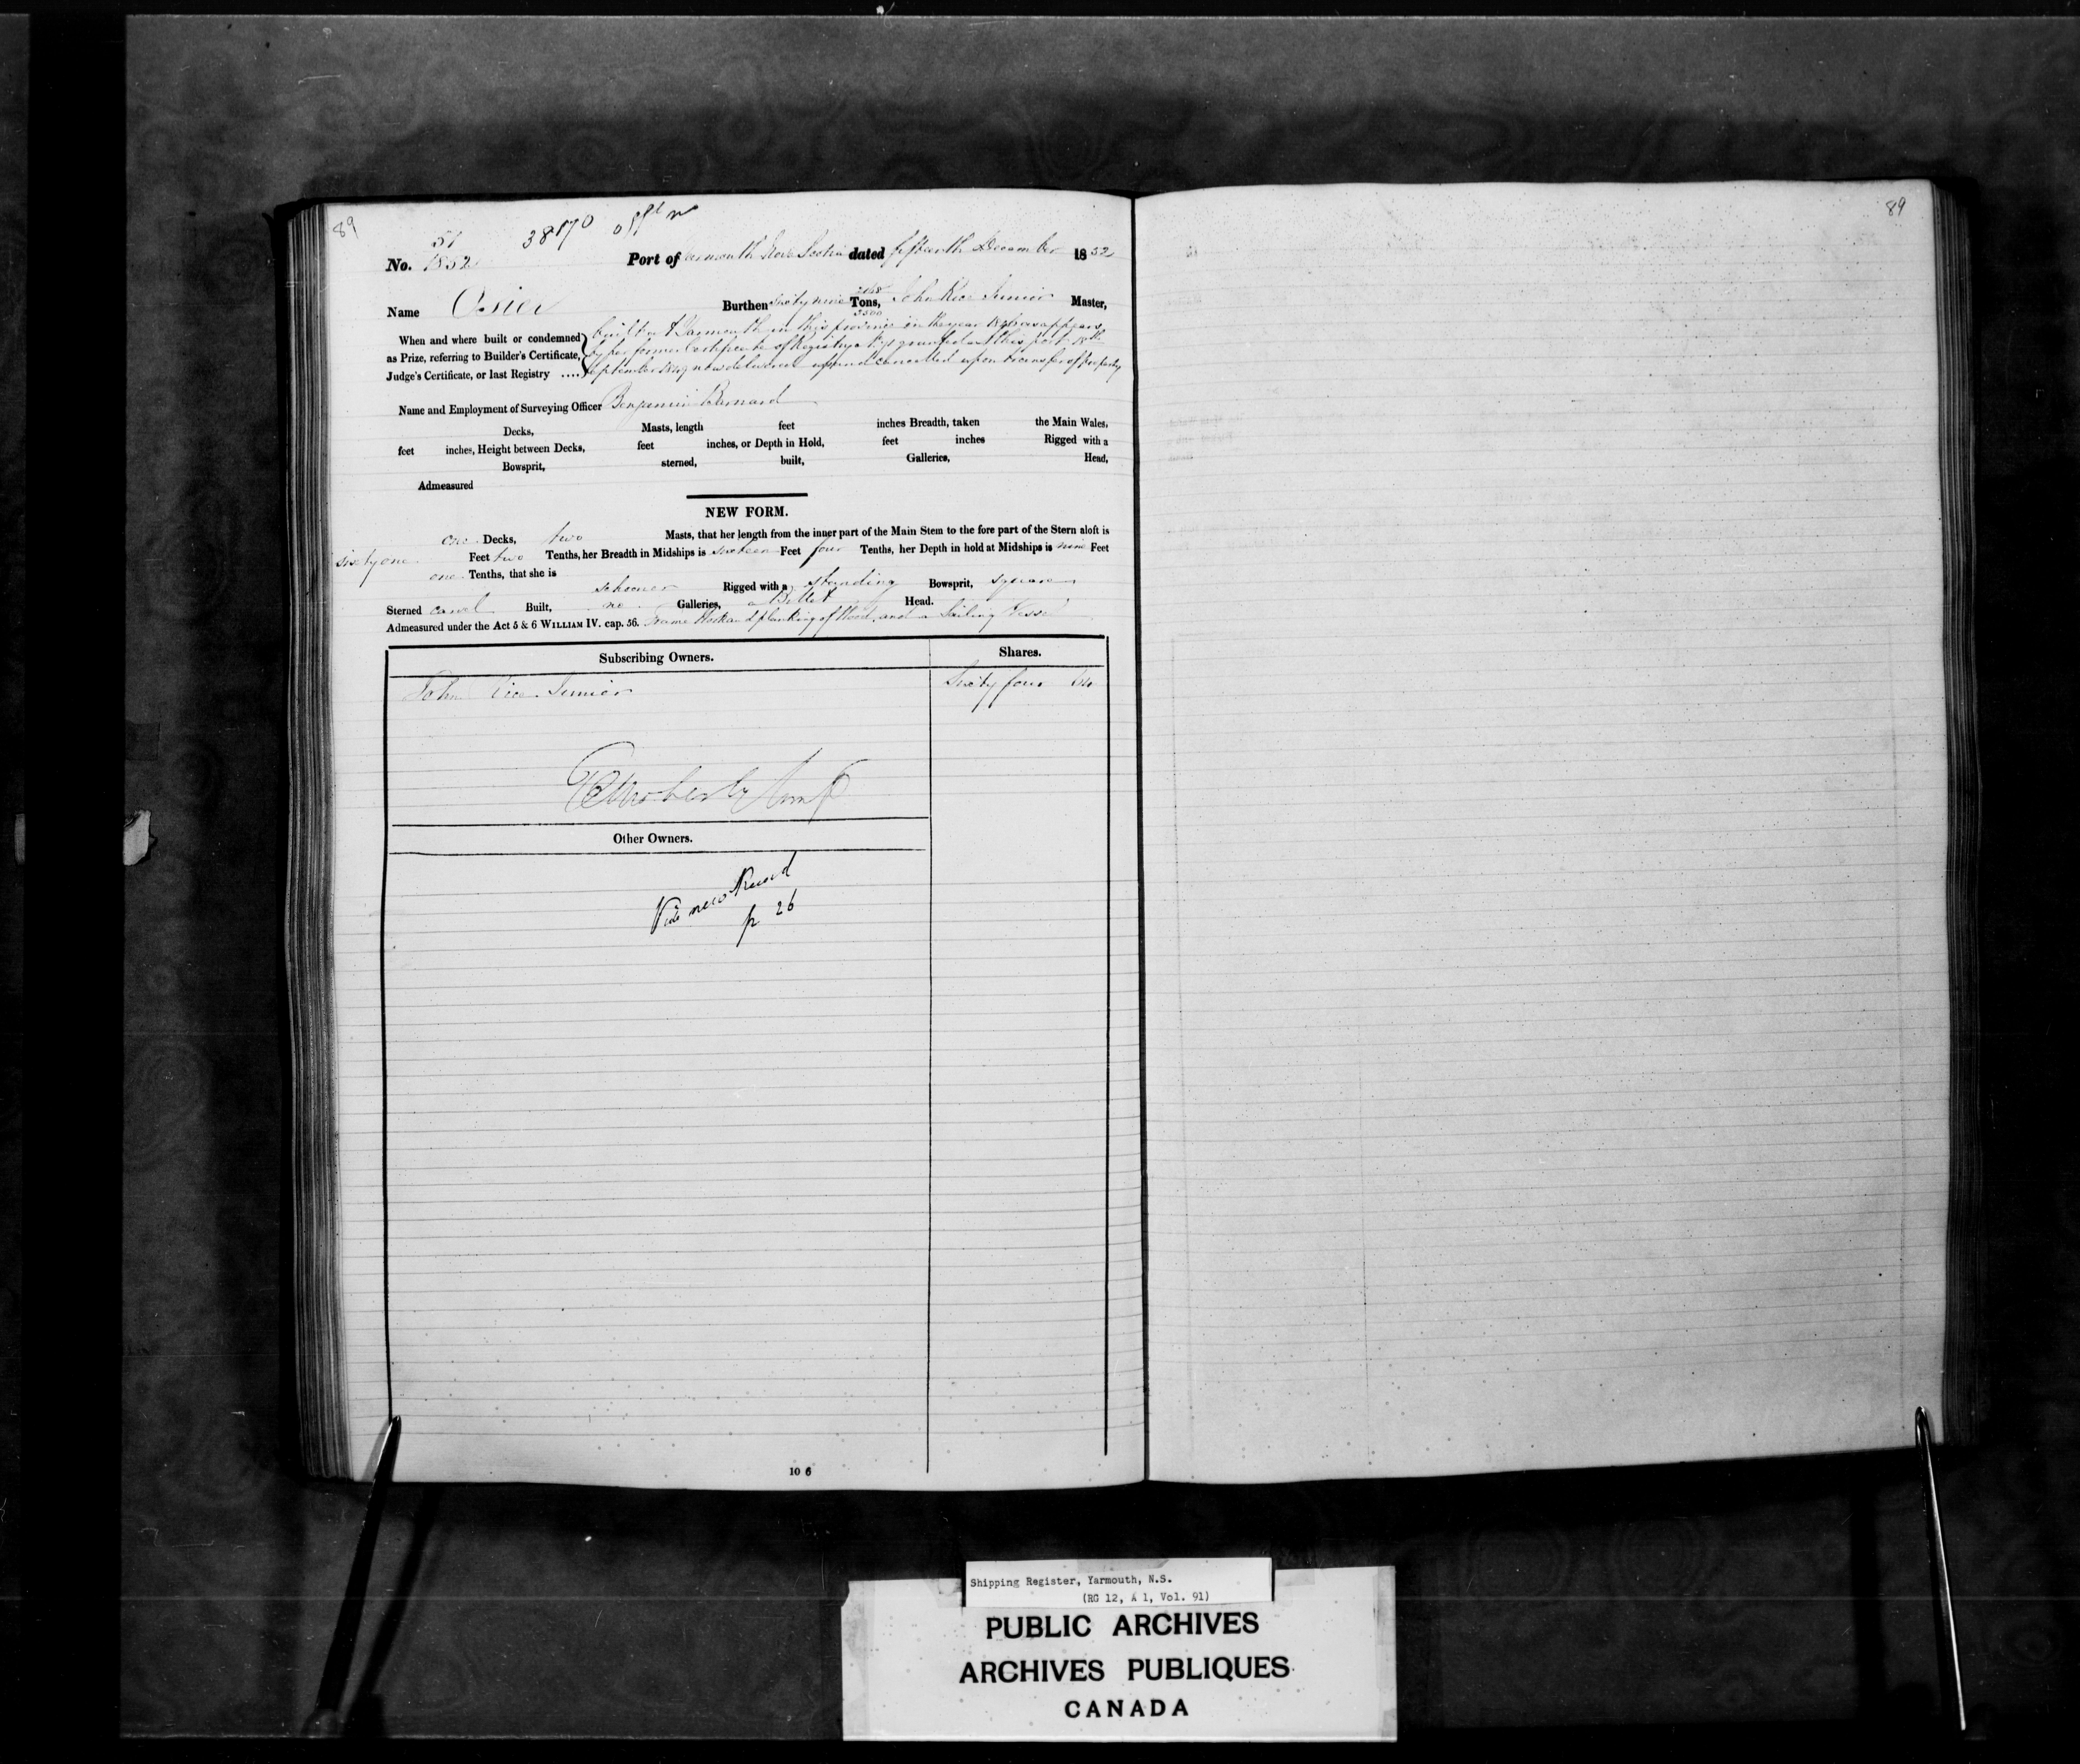 89
89
38170 off no
51
No. 1852 Port of Yarmouth Nova Scotia dated fifteenth December 1852
Name Osier Burthen Sixty nine Tons, John Rice Junior Master,
3500
When and where built or condemned as Prize, referring to Builder's Certificate, Judge's Certificate, or last Registry ....
built at Yarmouth in this province in the year as appears
by her former Certificate of Registry granted at this port 18th
September 1849 now delivered up and cancelled upon transfer of property
Name and Employment of Surveying Officer Benjamin Barnard
Decks, Masts, length feet inches Breadth, taken the Main Wales,
feet inches, Height between Decks, feet inches, or Depth in Hold, feet inches Rigged with a
Bowsprit, sterned, built, Galleries, Head,
Admeasured
NEW FORM.
one Decks, two Masts, that her length from the inner part of the Main Stem to the fore part of the Stern aloft is
sixty one Feet two Tenths, her Breadth in Midships is sixteen Feet four Tenths, her Depth in hold at Midships is nine Feet
one Tenths, that she is
schooner Rigged with a standing Bowsprit, square
Sterned carvel Built, no Galleries, a Billet Head.
Admeasured under the Act 5 & 6 WILLIAM IV. cap. 56. Frame Work and planking of Wood, and a Sailing Vessel
Subscribing Owners. Shares.
John Rice Junior Sixty four 64
Other Owners.
Vide new Record
p 26
10 6
Shipping Register, Yarmouth, N.S.
(RG 12, A 1, Vol. 91)
PUBLIC ARCHIVES
ARCHIVES PUBLIQUES
CANADA